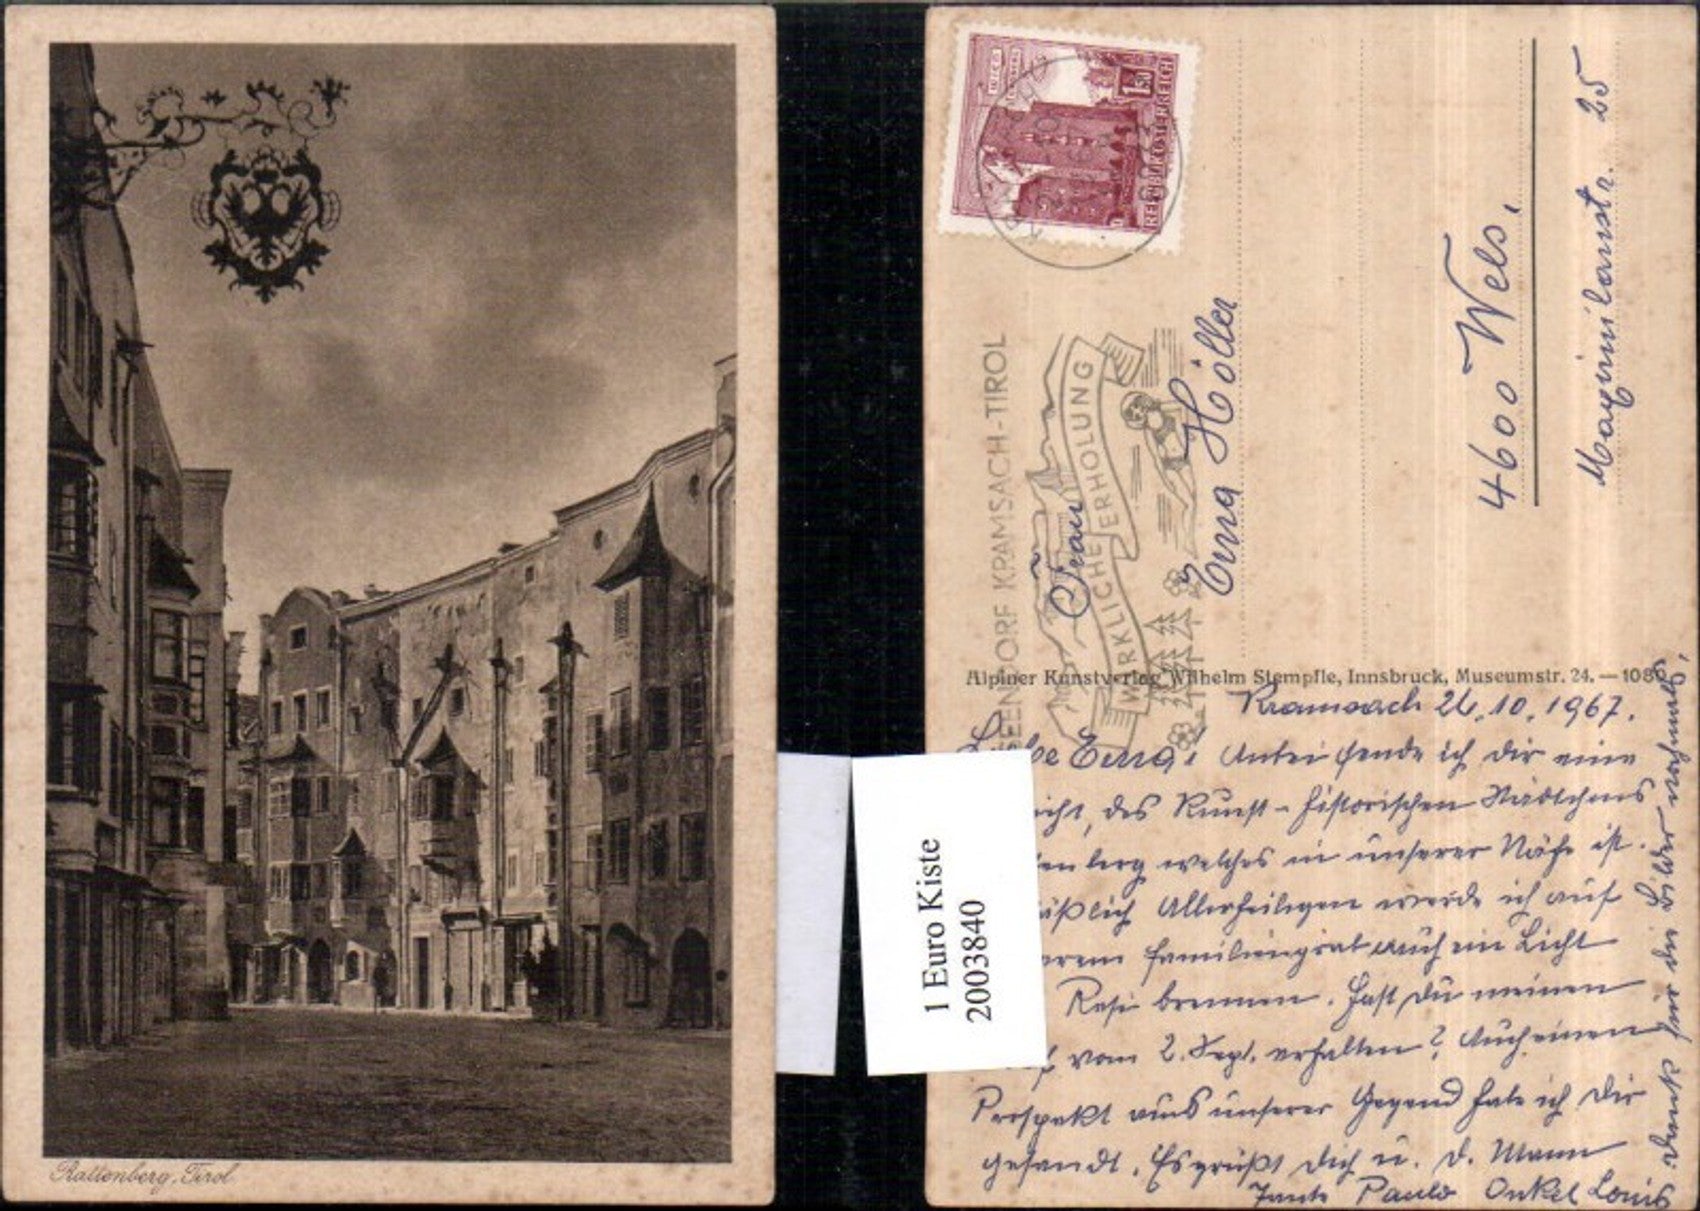 Rattenberg, Tirol
1 Euro Kiste
2003840
1.50
REPUBLIK ÖSTERREICH
SEENDORF KRAMSACH-TIROL
WIRKLICHE ERHOLUNG
Frau
Erna Höller
4600 Wels,
Maximilianstr. 25
Alpiner Kunstverlag Wilhelm Stempfle, Innsbruck, Museumstr. 24. — 1080
Kramsach 26.10.1967.
Liebe Erna! Anbei sende ich Dir eine
icht, des Kunst-historischen Städtchens
enberg welches in unserer Nähe ist.
äßlich Allerheiligen werde ich auf
erem Familiengrab auch ein Licht
Resi brennen. Hast Du meinen
f vom 2. Sept. erhalten? Auch einen
Prospekt aus unserer Gegend habe ich Dir
gesandt. Es grüßt Dich u. D. Mann
Tante Paula Onkel Louis
Dank für die Bilder nochmals,